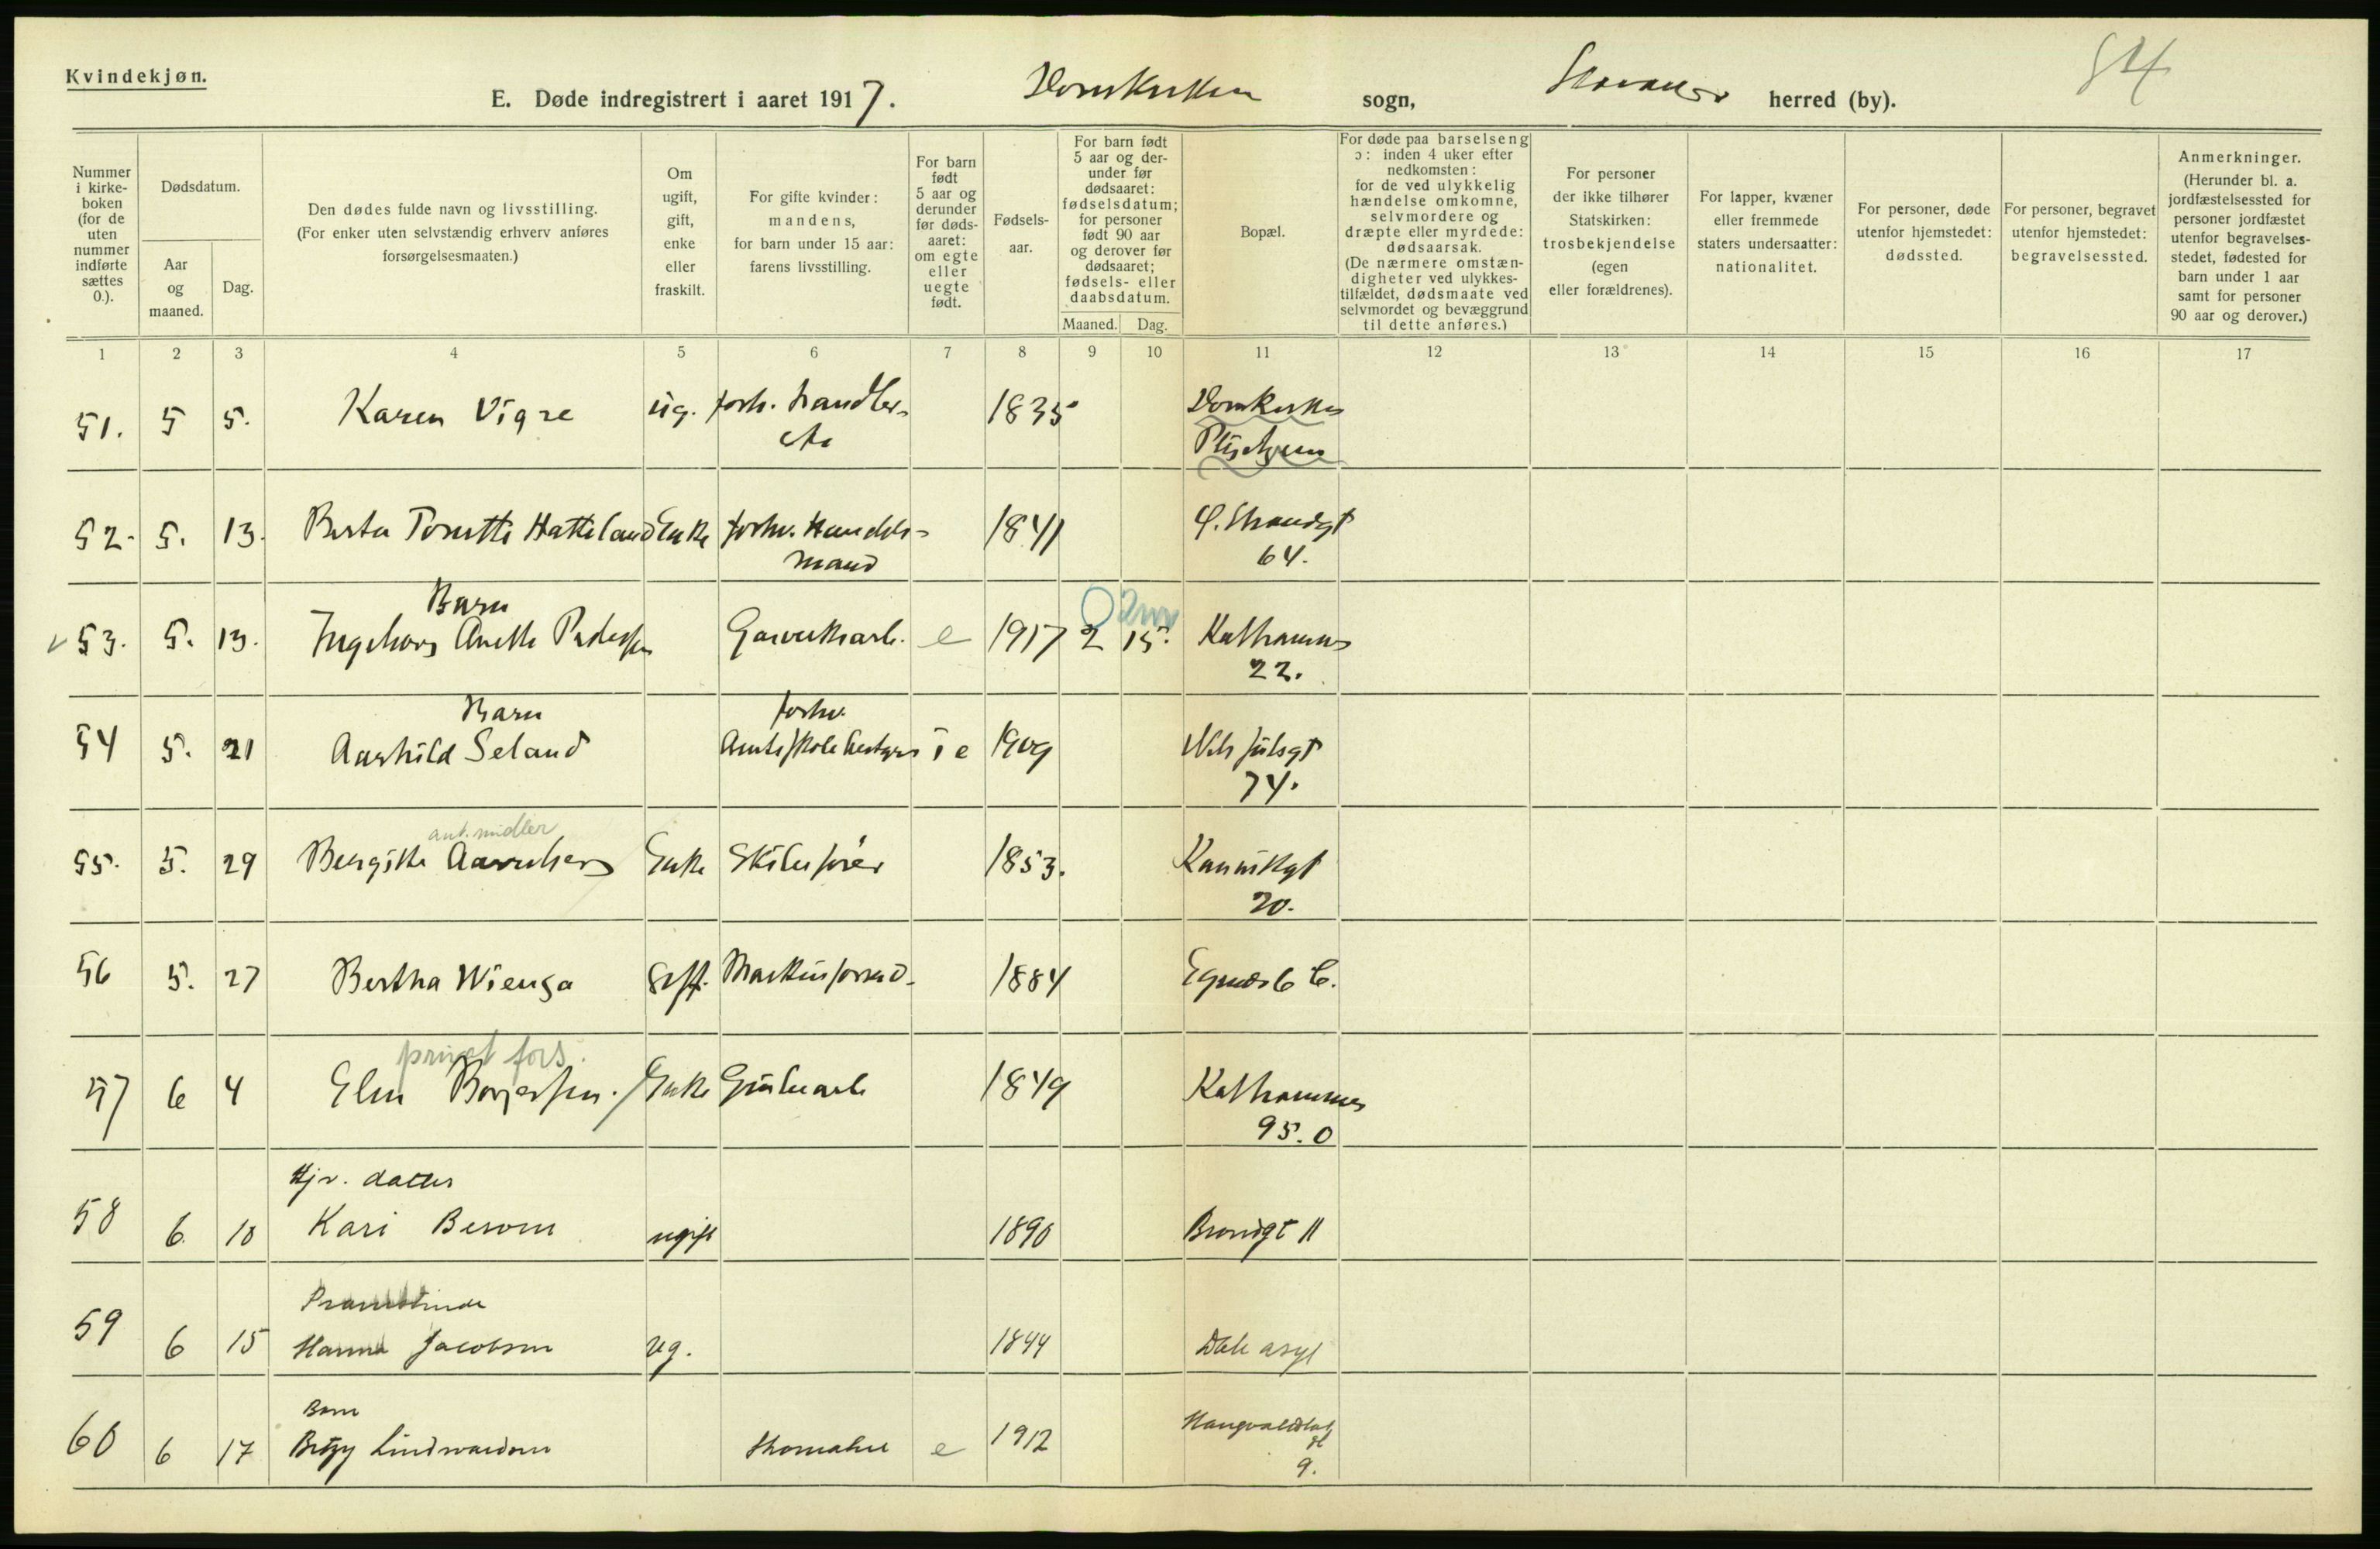 Kvindekjøn.
E. Døde indregistrert i aaret 1917. Domkirken sogn, Stavanger herred (by).
84
Nummer i kirkeboken (for de uten nummer indførte sættes 0.).
Dødsdatum.
Aar og maaned.
Dag.
Den dødes fulde navn og livsstilling.
(For enker uten selvstændig erhverv anføres forsørgelsesmaaten.)
Om ugift, gift, enke eller fraskilt.
For gifte kvinder: mandens, for barn under 15 aar: farens livsstilling.
For barn født 5 aar og derunder før dødsaaret: om egte eller uegte født.
Fødselsaar.
For barn født 5 aar og derunder før dødsaaret: fødselsdatum; for personer født 90 aar og derover før dødsaaret; fødsels- eller daabsdatum.
Maaned.
Dag.
Bopæl.
For døde paa barselseng ɔ: inden 4 uker efter nedkomsten: for de ved ulykkelig hændelse omkomne, selvmordere og dræpte eller myrdede: dødsaarsak. (De nærmere omstændigheter ved ulykkestilfældet, dødsmaate ved selvmordet og bevæggrund til dette anføres.)
For personer der ikke tilhører Statskirken: trosbekjendelse (egen eller forældrenes).
For lapper, kvæner eller fremmede staters undersaatter: nationalitet.
For personer, døde utenfor hjemstedet: dødssted.
For personer, begravet utenfor hjemstedet: begravelsessted.
Anmerkninger. (Herunder bl. a. jordfæstelsessted for personer jordfæstet utenfor begravelsesstedet, fødested for barn under 1 aar samt for personer 90 aar og derover.)
1 2 3 4 5 6 7 8 9 10 11 12 13 14 15 16 17
51. 5 5. Karen Vigre ug. forh. handler- 1835 Domkirkens
Pleiehjem
52. 5. 13. Berta Tonette Hatteland Enke forhv. Handels- 1841 Ø. Strandgt
mand 64.
Barn
53. 5. 13. Ingeborg Anette Pedersen Garverarb. e 1917 2 15. Kathammer
22.
Barn forhv.
54 5. 21 Aashild Seland Amtsskolebestyrer e 1909 Nils Juelsgt
74.
ant. midler
55. 5. 29 Bergitte Aarreberg Enke Skibsfører 1853. Kannikgt
20.
56 5. 27 Bertha Wienga Gift. Maskinformand. 1884 Egnæs 6 b.
privat fors.
57 6 4 Elen Borgersen. Enke Gruvearb 1849 Kathammer
95. 0
Hjv. datter
58 6. 10 Kari Berom ugift 1890 Bruvigt 11
59 6 15 Hanna Jacobsen ug. 1844 Dale asyl
Barn
60 6 17 Betzy Lindvardsen Skomaker e 1912 gt
9.